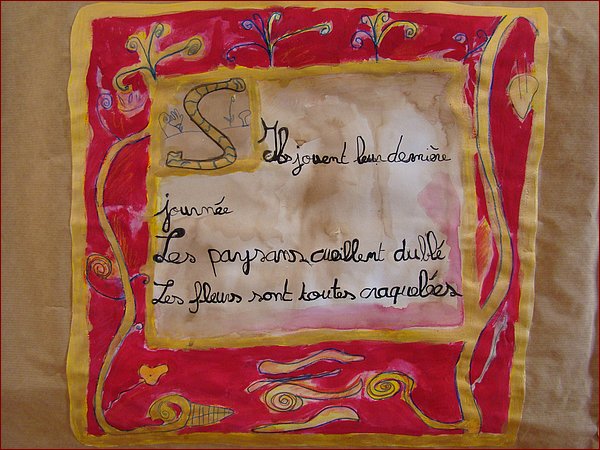 S
Ils jouent leur dernière
journée
Les paysans cueillent du blé
Les fleurs sont toutes craquelées